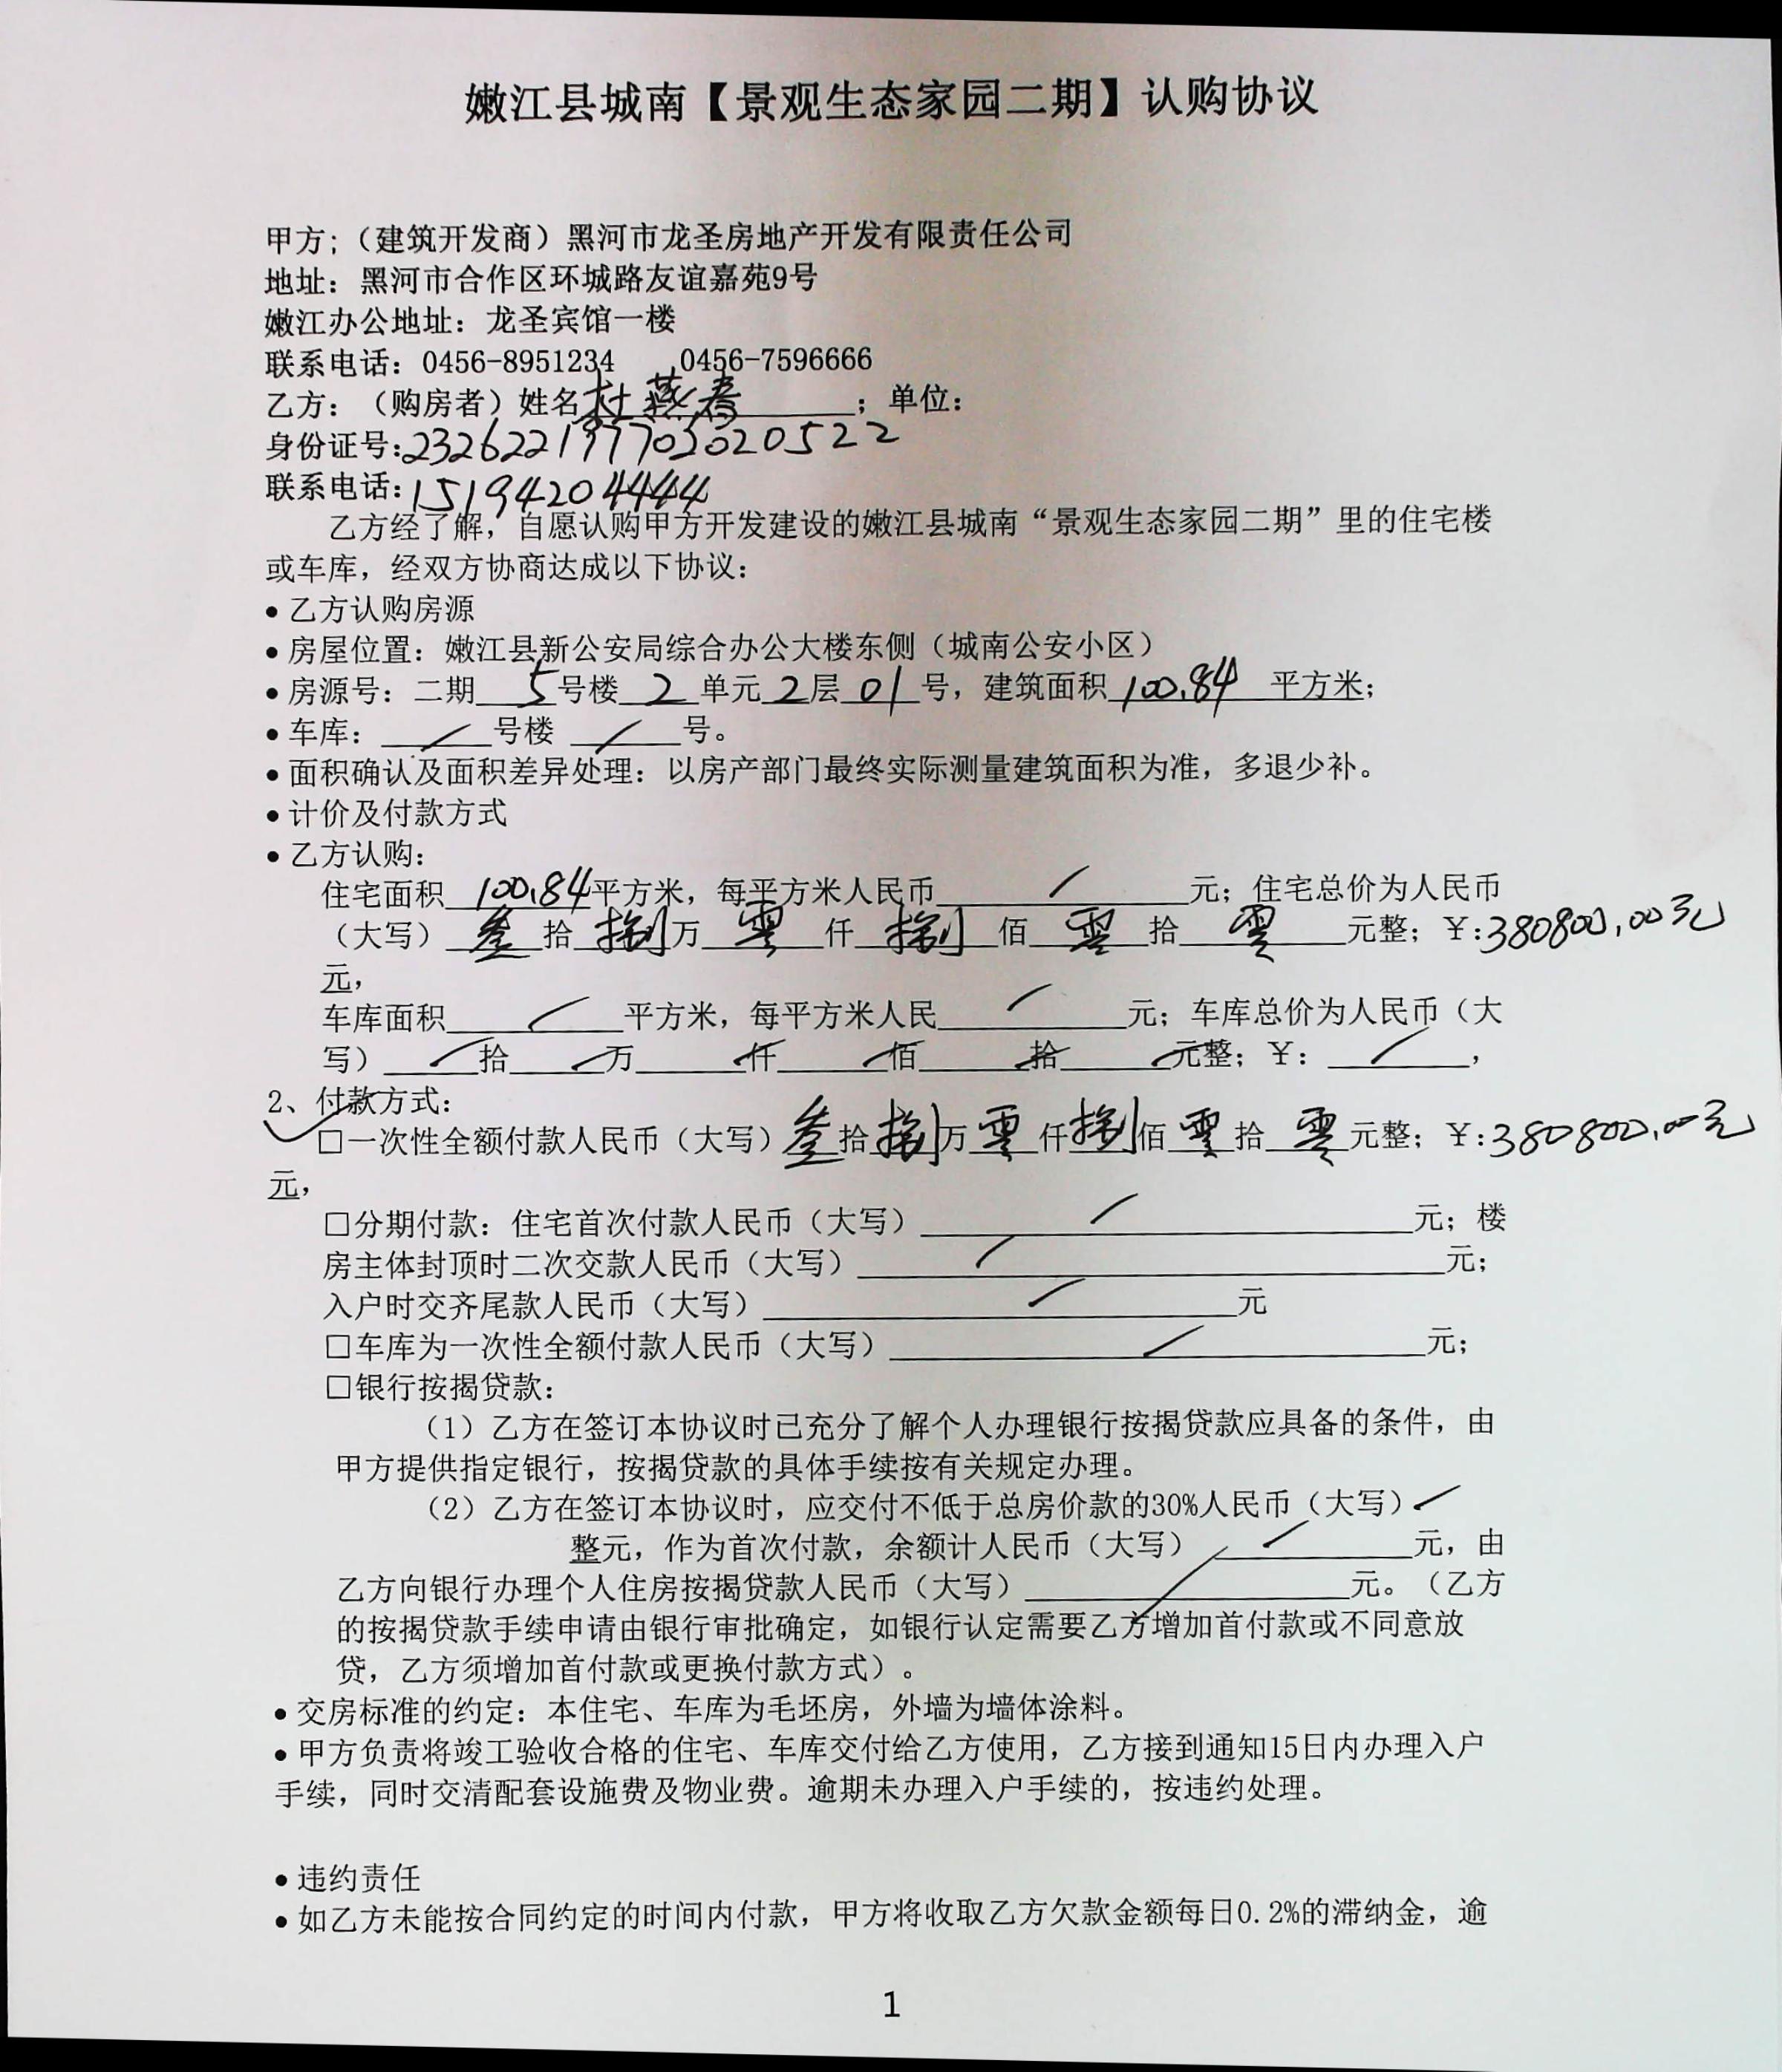 嫩江县城南【景观生态家园二期】认购协议
甲方;（建筑开发商）黑河市龙圣房地产开发有限责任公司
地址：黑河市合作区环城路友谊嘉苑9号
嫩江办公地址：龙圣宾馆一楼
联系电话：0456-8951234 0456-7596666
乙方：（购房者）姓名杜燕春；单位：
身份证号:
联系电话:15194204444
乙方经了解，自愿认购甲方开发建设的嫩江县城南“景观生态家园二期”里的住宅楼
或车库，经双方协商达成以下协议：
●乙方认购房源
●房屋位置：嫩江县新公安局综合办公大楼东侧（城南公安小区）
●房源号：二期 5 号楼 2 单元 2 层 01 号，建筑面积 100.84 平方米；
●车库： / 号楼 / 号。
●面积确认及面积差异处理：以房产部门最终实际测量建筑面积为准，多退少补。
●计价及付款方式
●乙方认购：
住宅面积 100.84 平方米，每平方米人民币 / 元；住宅总价为人民币
（大写） 叁 拾 捌 万 零 仟 捌 佰 零 拾 零 元整；￥:380800.00元
元，
车库面积 / 平方米，每平方米人民 / 元；车库总价为人民币（大
写） / 拾 / 万 / 仟 / 佰 / 拾 / 元整；￥： / ，
2、付款方式：
✓□一次性全额付款人民币（大写） 叁 拾 捌 万 零 仟 捌 佰 零 拾 零 元整；￥:380800.00元
元，
□分期付款：住宅首次付款人民币（大写） / 元；楼
房主体封顶时二次交款人民币（大写） / 元；
入户时交齐尾款人民币（大写） / 元
□车库为一次性全额付款人民币（大写） / 元；
□银行按揭贷款：
（1）乙方在签订本协议时已充分了解个人办理银行按揭贷款应具备的条件，由
甲方提供指定银行，按揭贷款的具体手续按有关规定办理。
（2）乙方在签订本协议时，应交付不低于总房价款的30%人民币（大写） /
整元，作为首次付款，余额计人民币（大写） / 元，由
乙方向银行办理个人住房按揭贷款人民币（大写） / 元。（乙方
的按揭贷款手续申请由银行审批确定，如银行认定需要乙方增加首付款或不同意放
贷，乙方须增加首付款或更换付款方式）。
●交房标准的约定：本住宅、车库为毛坯房，外墙为墙体涂料。
●甲方负责将竣工验收合格的住宅、车库交付给乙方使用，乙方接到通知15日内办理入户
手续，同时交清配套设施费及物业费。逾期未办理入户手续的，按违约处理。
●违约责任
●如乙方未能按合同约定的时间内付款，甲方将收取乙方欠款金额每日0.2%的滞纳金，逾
1